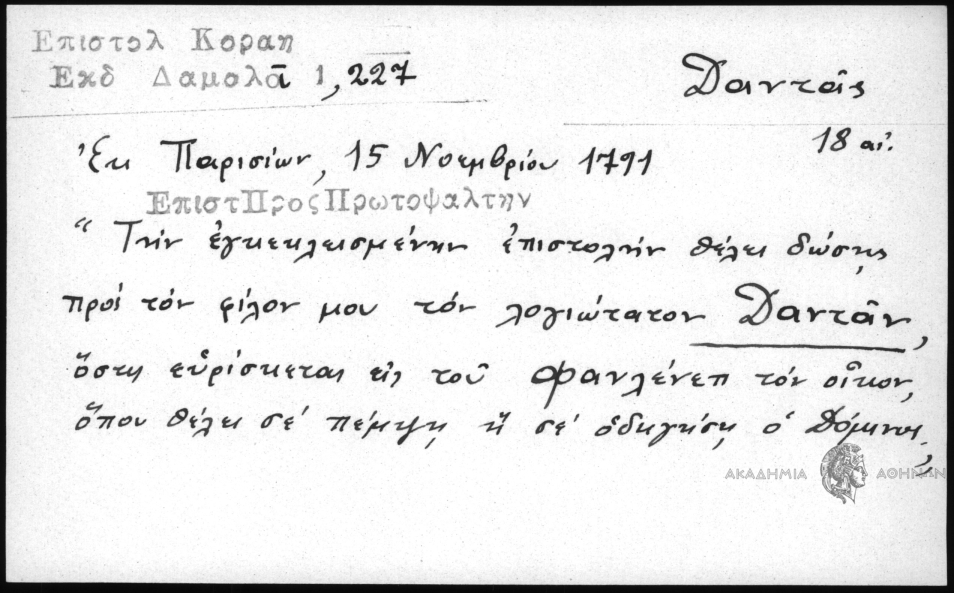 Επιστολ Κοραη
Εκδ Δαμαλᾶ 1,227
Δαντᾶς
18 αἰ.
Ἐκ Παρισίων, 15 Νοεμβρίου 1791
Επιστ Προς Πρωτοψαλτην
“ Τὴν ἐγκεκλεισμένην ἐπιστολὴν θέλει δώσῃς
πρὸς τὸν φίλον μου τὸν λογιώτατον Δαντᾶν,
ὅστις εὑρίσκεται εἰς τοῦ Φανλένεπ τὸν οἶκον,
ὅπου θέλει σὲ πέμψῃ ἢ σὲ ὁδηγήσῃ ὁ Δόμινος „
ΑΚΑΔΗΜΙΑ ΑΘΗΝΩΝ